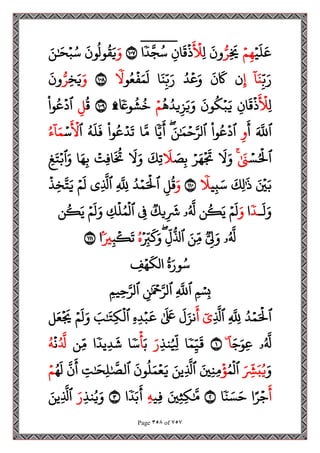 عَلَيْهِمْ يَخِرُّونَ لِلْأَذْقَانِ سُجَّدًا ١٠٧ وَيَقُولُونَ سُبْحَٰنَ
رَبِّنَآ إِن كَانَ وَعْدُ رَبِّنَا لَمَفْعُولًا ١٠٨ وَيَخِرُّونَ
لِلْأَذْقَانِ يَبْكُونَ وَيَزِيدُهُمْ خُشُوعًا ۩ ١٠٩ قُلِ ٱدْعُوا۟
ٱللَّهَ أَوِ ٱدْعُوا۟ ٱلرَّحْمَٰنَ ۖ أَيًّا مَّا تَدْعُوا۟ فَلَهُ ٱلْأَسْمَآءُ
ٱلْحُسْنَىٰ ۚ وَلَا تَجْهَرْ بِصَلَاتِكَ وَلَا تُخَافِتْ بِهَا وَٱبْتَغِ
بَيْنَ ذَٰلِكَ سَبِيلًا ١١٠ وَقُلِ ٱلْحَمْدُ لِلَّهِ ٱلَّذِى لَمْ يَتَّخِذْ
وَلَدًا وَلَمْ يَكُن لَّهُۥ شَرِيكٌ فِى ٱلْمُلْكِ وَلَمْ يَكُن
لَّهُۥ وَلِىٌّ مِّنَ ٱلذُّلِّ ۖ وَكَبِّرْهُ تَكْبِيرًۢا ١١١
سُورَةُ الكَهْفِ
بِسْمِ ٱللَّهِ ٱلرَّحْمَٰنِ ٱلرَّحِيمِ
ٱلْحَمْدُ لِلَّهِ ٱلَّذِىٓ أَنزَلَ عَلَىٰ عَبْدِهِ ٱلْكِتَٰبَ وَلَمْ يَجْعَل
لَّهُۥ عِوَجَا ۜ ١ قَيِّمًا لِّيُنذِرَ بَأْسًا شَدِيدًا مِّن لَّدُنْهُ
وَيُبَشِّرَ ٱلْمُؤْمِنِينَ ٱلَّذِينَ يَعْمَلُونَ ٱلصَّٰلِحَٰتِ أَنَّ لَهُمْ
أَجْرًا حَسَنًا ٢ مَّٰكِثِينَ فِيهِ أَبَدًا ٣ وَيُنذِرَ ٱلَّذِينَ
Page ٣٥٨ of ٧٥٧